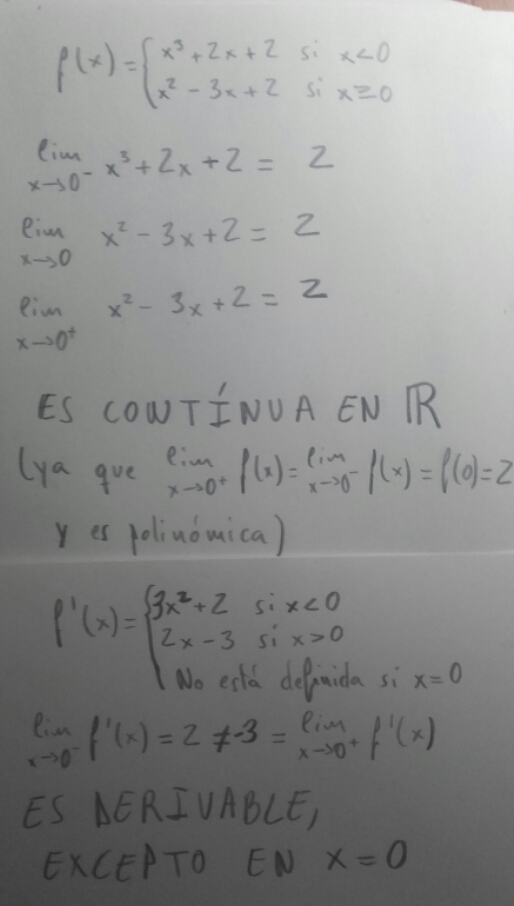 f(x) = { x³ + 2x + 2 si x < 0
x² - 3x + 2 si x ≥ 0
lim x→0⁻ x³ + 2x + 2 = 2
lim x→0 x² - 3x + 2 = 2
lim x→0⁺ x² - 3x + 2 = 2
ES CONTÍNUA EN ℝ
(ya que lim x→0⁺ f(x) = lim x→0⁻ f(x) = f(0) = 2
y es polinómica)
f'(x) = { 3x² + 2 si x < 0
2x - 3 si x > 0
No está definida si x = 0
lim x→0⁻ f'(x) = 2 ≠ -3 = lim x→0⁺ f'(x)
ES DERIVABLE,
EXCEPTO EN x = 0